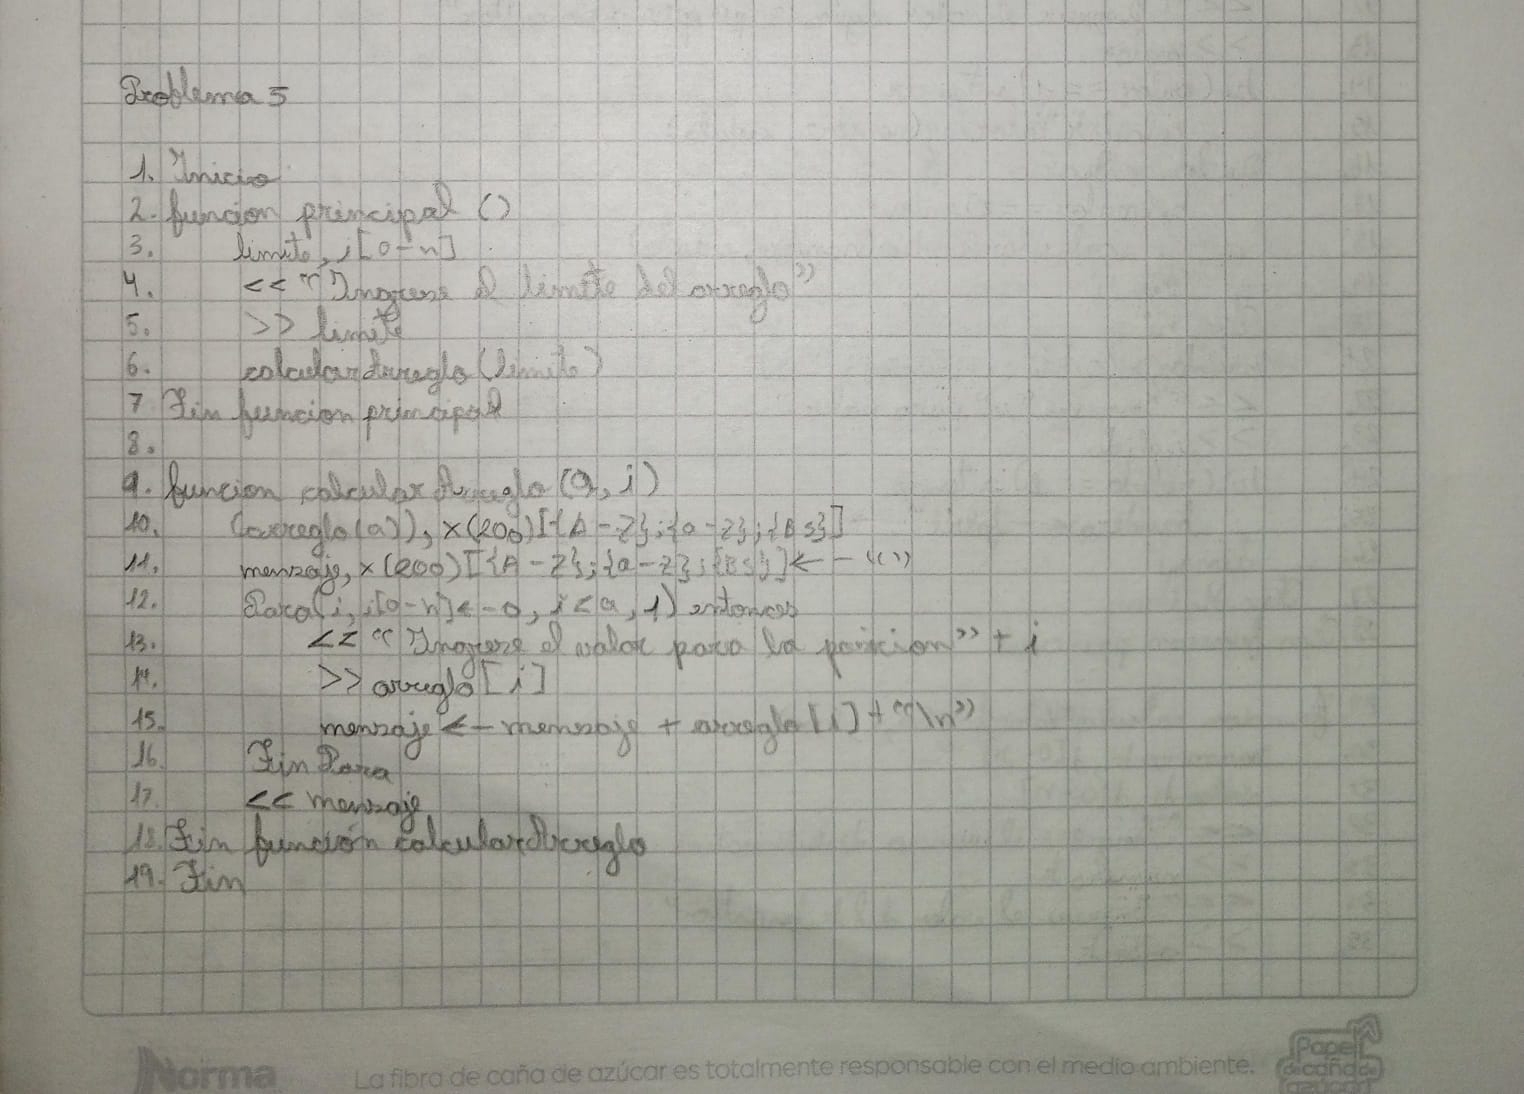 Problema 5
1. Inicio
2. funcion principal ()
3. limite, i[0-n]
4. << "Ingrese el limite del arreglo"
5. >> limite
6. calcularArreglo(limite)
7 Fin funcion principal
8.
9. funcion calcularArreglo(a, i)
10. (arreglo(a)), x(200)[{A-Z};{a-z};{Bs}]
11. mensaje, x(200)[{A-Z};{a-z};{Bs}]<- ""
12. Para(i, i[0-n]<-0, i<a, 1) entonces
13. << "Ingrese el valor para la posicion" + i
14. >> arreglo[i]
15. mensaje <- mensaje + arreglo[i] + "\n"
16. Fin Para
17. << mensaje
18. Fin función calcularArreglo
19. Fin
Norma
La fibra de caña de azúcar es totalmente responsable con el medio ambiente.
Papel
de caña de
azúcar